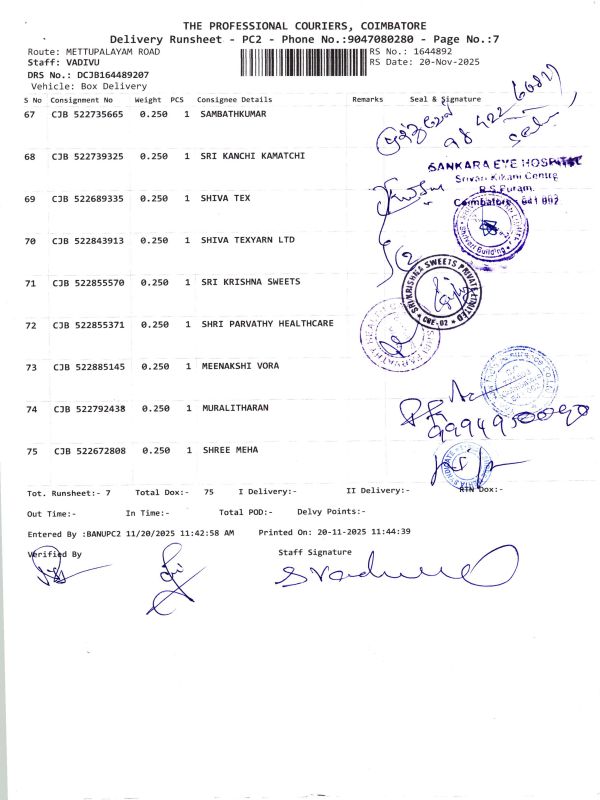 THE PROFESSIONAL COURIERS, COIMBATORE
Delivery Runsheet - PC2 - Phone No.:9047080280 - Page No.:7
Route: METTUPALAYAM ROAD
RS No.: 1644892
Staff: VADIVU
RS Date: 20-Nov-2025
DRS No.: DCJB164489207
Vehicle: Box Delivery
S No Consignment No Weight PCS Consignee Details Remarks Seal & Signature
67 CJB 522735665 0.250 1 SAMBATHKUMAR
68 CJB 522739325 0.250 1 SRI KANCHI KAMATCHI
SANKARA EYE HOSPITAL
R.S.Puram.
69 CJB 522689335 0.250 1 SHIVA TEX
Coimbatore - 641 002
70 CJB 522843913 0.250 1 SHIVA TEXYARN LTD
71 CJB 522855570 0.250 1 SRI KRISHNA SWEETS
SRI KRISHNA SWEETS PRIVATE LIMITED
CBE-02
72 CJB 522855371 0.250 1 SHRI PARVATHY HEALTHCARE
73 CJB 522885145 0.250 1 MEENAKSHI VORA
74 CJB 522792438 0.250 1 MURALITHARAN
75 CJB 522672808 0.250 1 SHREE MEHA
Tot. Runsheet:- 7 Total Dox:- 75 I Delivery:- II Delivery:- RTN Dox:-
Out Time:- In Time:- Total POD:- Delvy Points:-
Entered By :BANUPC2 11/20/2025 11:42:58 AM Printed On: 20-11-2025 11:44:39
Verified By
Staff Signature